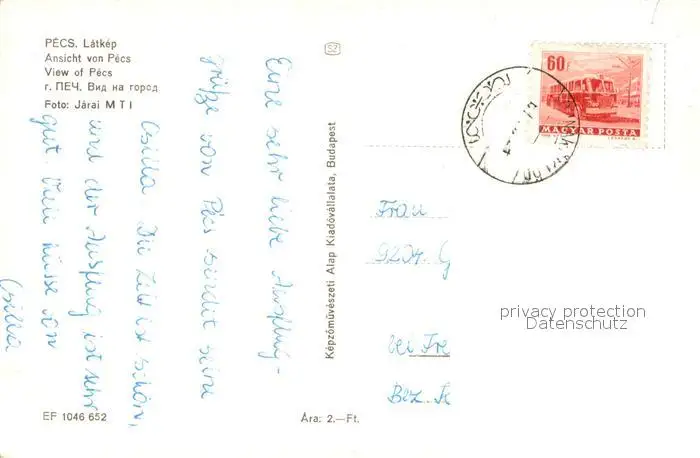 PÉCS. Látkép
Ansicht von Pécs
View of Pécs
г. ПЕЧ. Вид на город
Foto: Járai M T I
Eine sehr liebe Ausflug-
grüße von Pécs sendet
Csilla Die Zeit ist schön,
und der Ausflug ist sehr
gut. Viele Küsse von
Csilla
EF 1046 652
Ára: 2.—Ft.
Képzőművészeti Alap Kiadóvállalata, Budapest
SZ
60f
MAGYAR POSTA
Frau
9204 G
bei Fre
Bez. K
privacy protection
Datenschutz